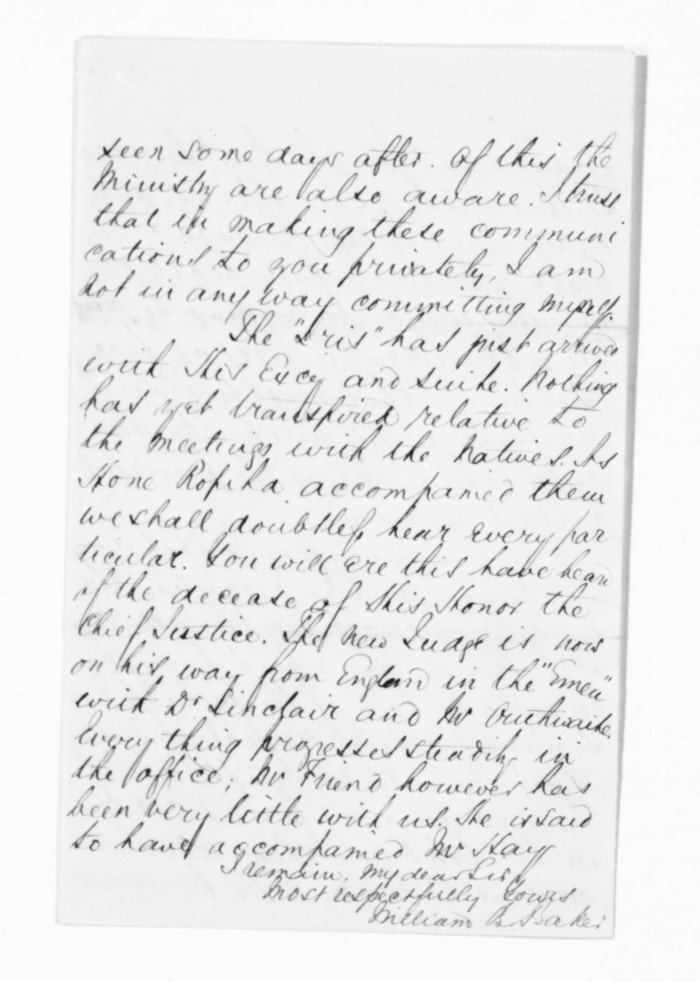 seen some days after. Of this the
Ministry are also aware. I trust
that in making these communi
cations to you privately, I am
not in any way committing myself.
The "Iris" has just arrived
with His Excy and suite. Nothing
has yet transpired relative to
the meetings with the Natives. As
Hone Ropiha accompanied them
we shall doubtless hear every par
ticular. You will ere this have hear
of the decease of His Honor the
Chief Justice. The New Judge is now
on his way from England in the "Emeu"
with Dr Sinclair and Mr Outhwaite.
Every thing progresses steadily in
the office; Mr Friend however has
been very little with us. He is said
to have accompanied Mr Hay
I remain, my dear Sir,
Most respectfully Yours
William B. Baker